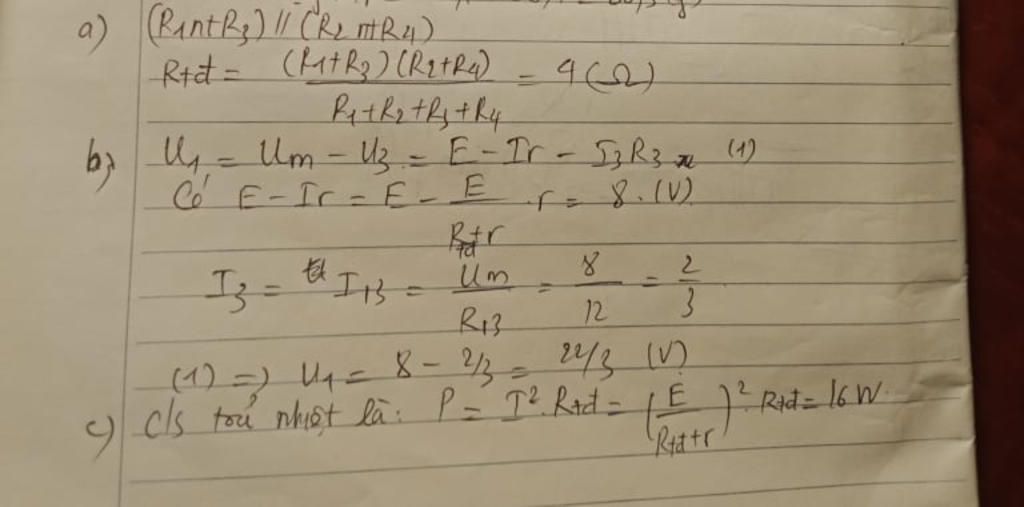 a) (R1ntR3) // (R2ntR4)
Rtđ = (R1+R3)(R2+R4) / R1+R2+R3+R4 = 4 (Ω)
b, U1 = Um - U3 = E - Ir - I3R3 (1)
Có E - Ir = E - E / Rtđ+r . r = 8 . (V)
I3 = I13 = Um / R13 = 8 / 12 = 2 / 3
(1) => U1 = 8 - 2/3 = 22/3 (V)
c) C/s toả nhiệt là: P = I². Rtđ = (E / Rtđ+r)². Rtđ = 16 W.